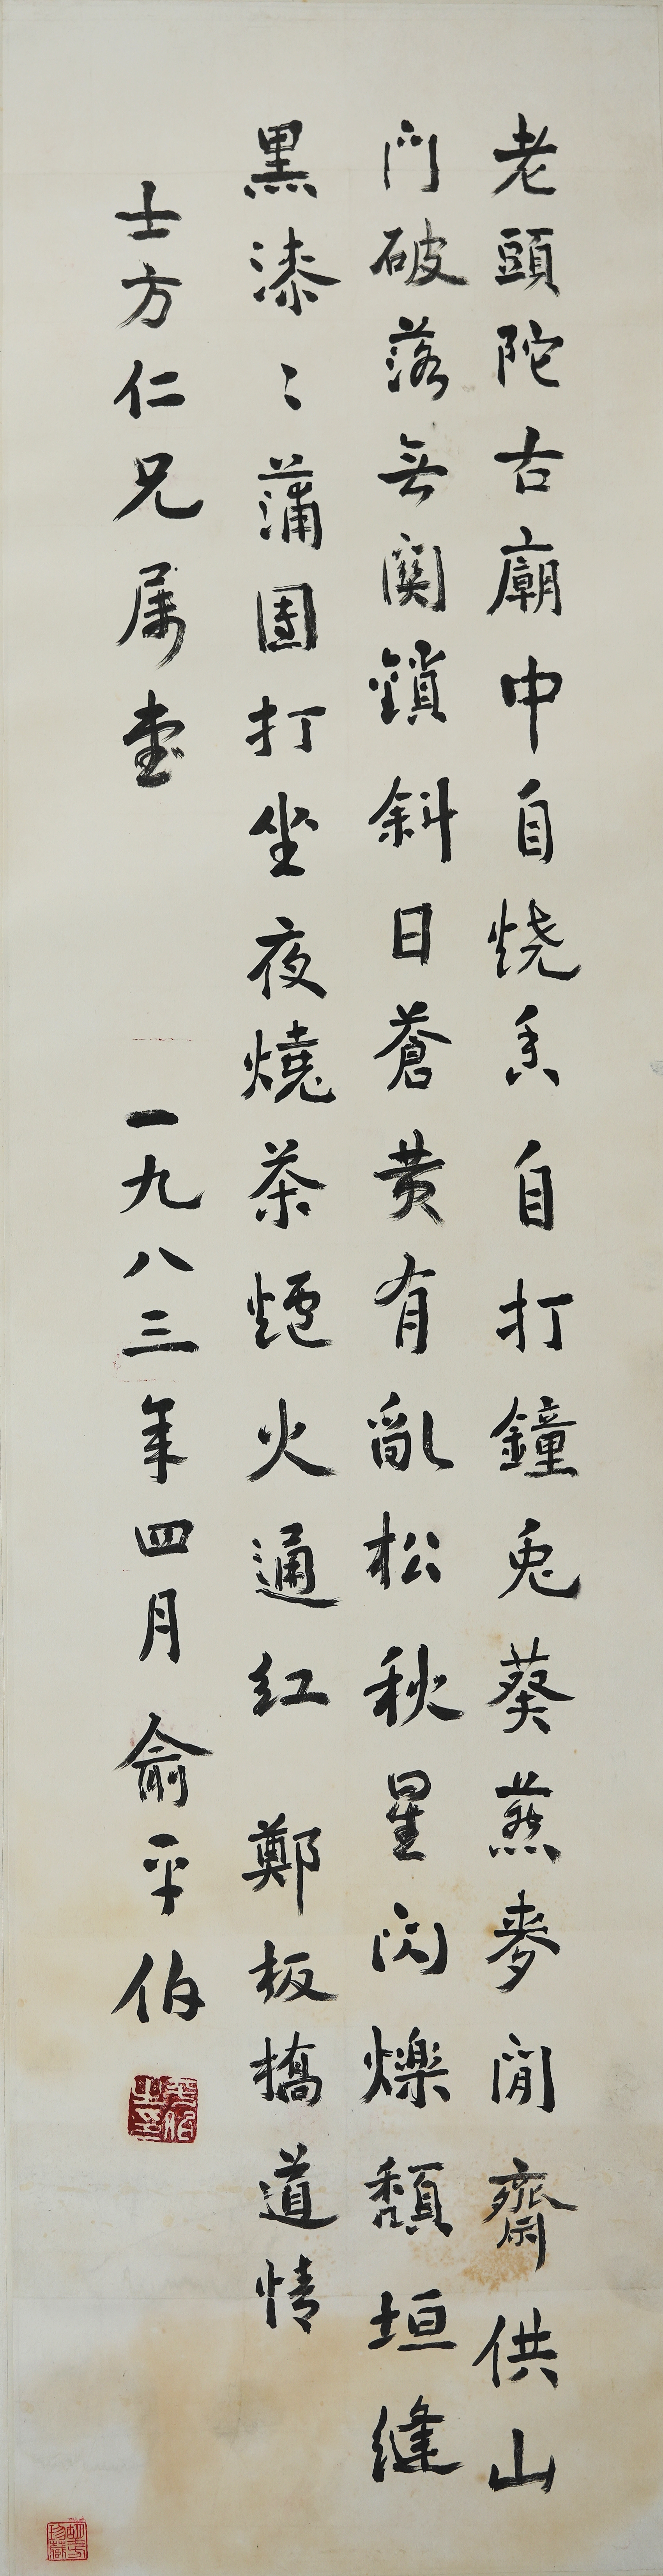 老頭陀古廟中自烧香自打鐘兎葵燕麥閒齋供山
門破落无関鎖斜日蒼黄有亂松秋星闪爍頽垣縫
黑漆〻蒲團打坐夜燒茶爐火通红 鄭板橋道情
士方仁兄属書 一九八三年四月 俞平伯